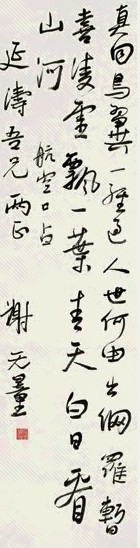 真同鳥翼一經過人世何由出網羅暫
喜凌虛飄一葉青天白日看
山河 航空口占
延濤吾兄兩正 謝无量